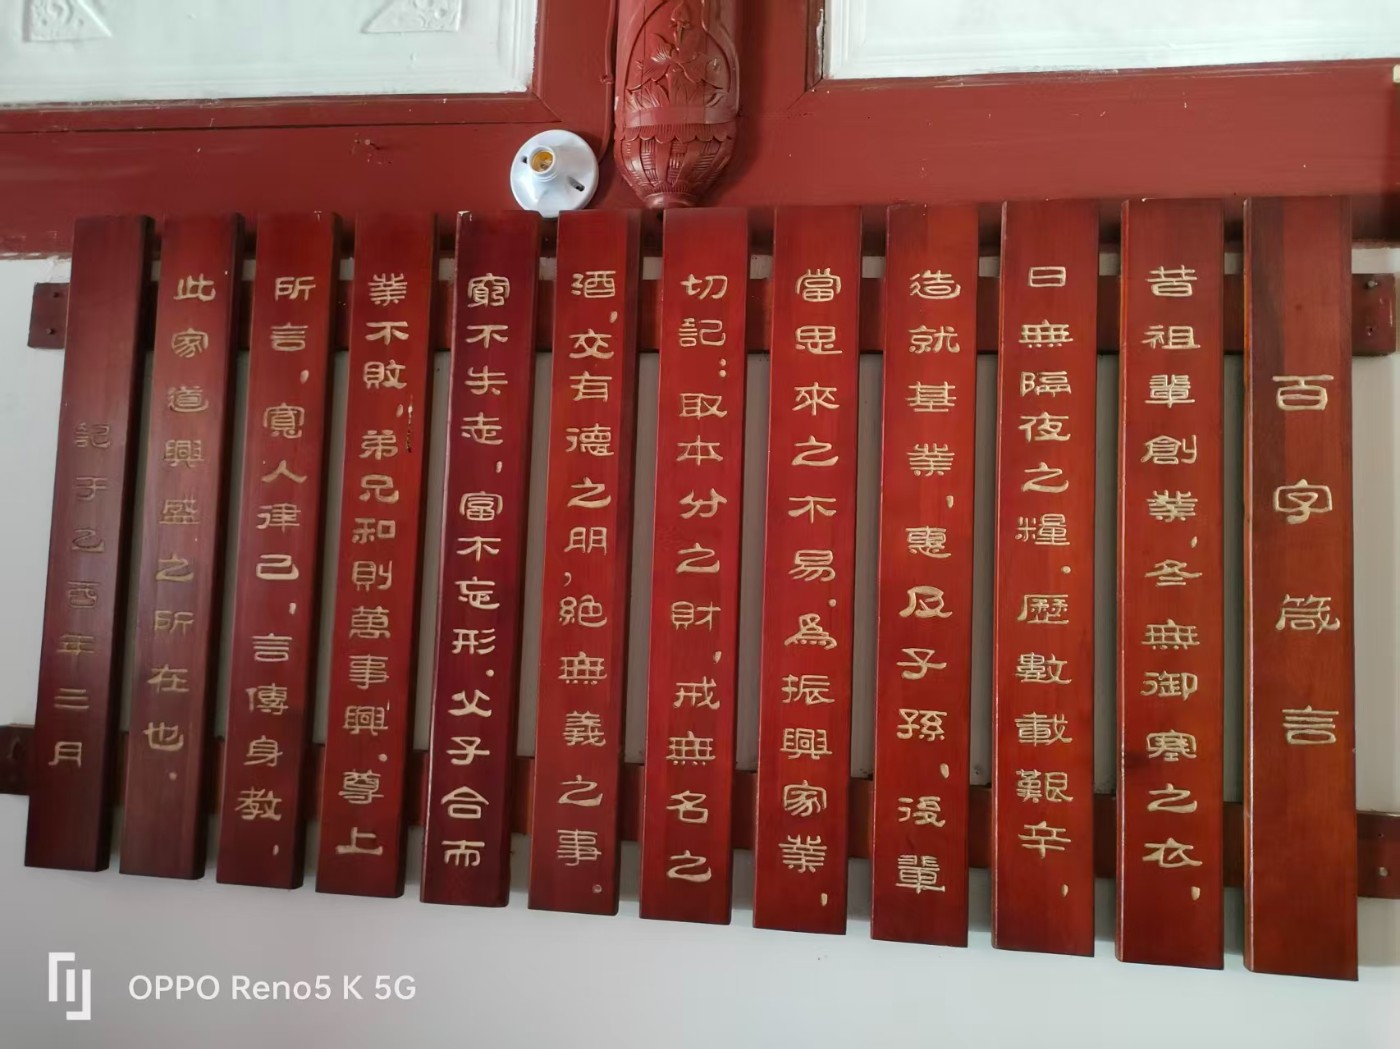 百字箴言
昔祖輩創業,冬無御寒之衣,
日無隔夜之糧.歷數載艱辛,
造就基業,惠及子孫,後輩
當思來之不易.爲振興家業,
切記:取本分之財,戒無名之
酒,交有德之朋,絕無義之事。
窮不失走,富不忘形.父子合而
業不敗,弟兄和則萬事興.尊上
所言,寬人律己,言傳身教,
此家道興盛之所在也.
記于乙酉年三月
OPPO Reno5 K 5G